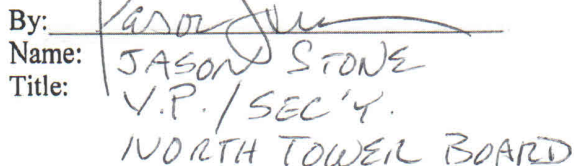 By: Jason
Name: JASON STONE
Title: V.P. / SEC'Y.
NORTH TOWER BOARD